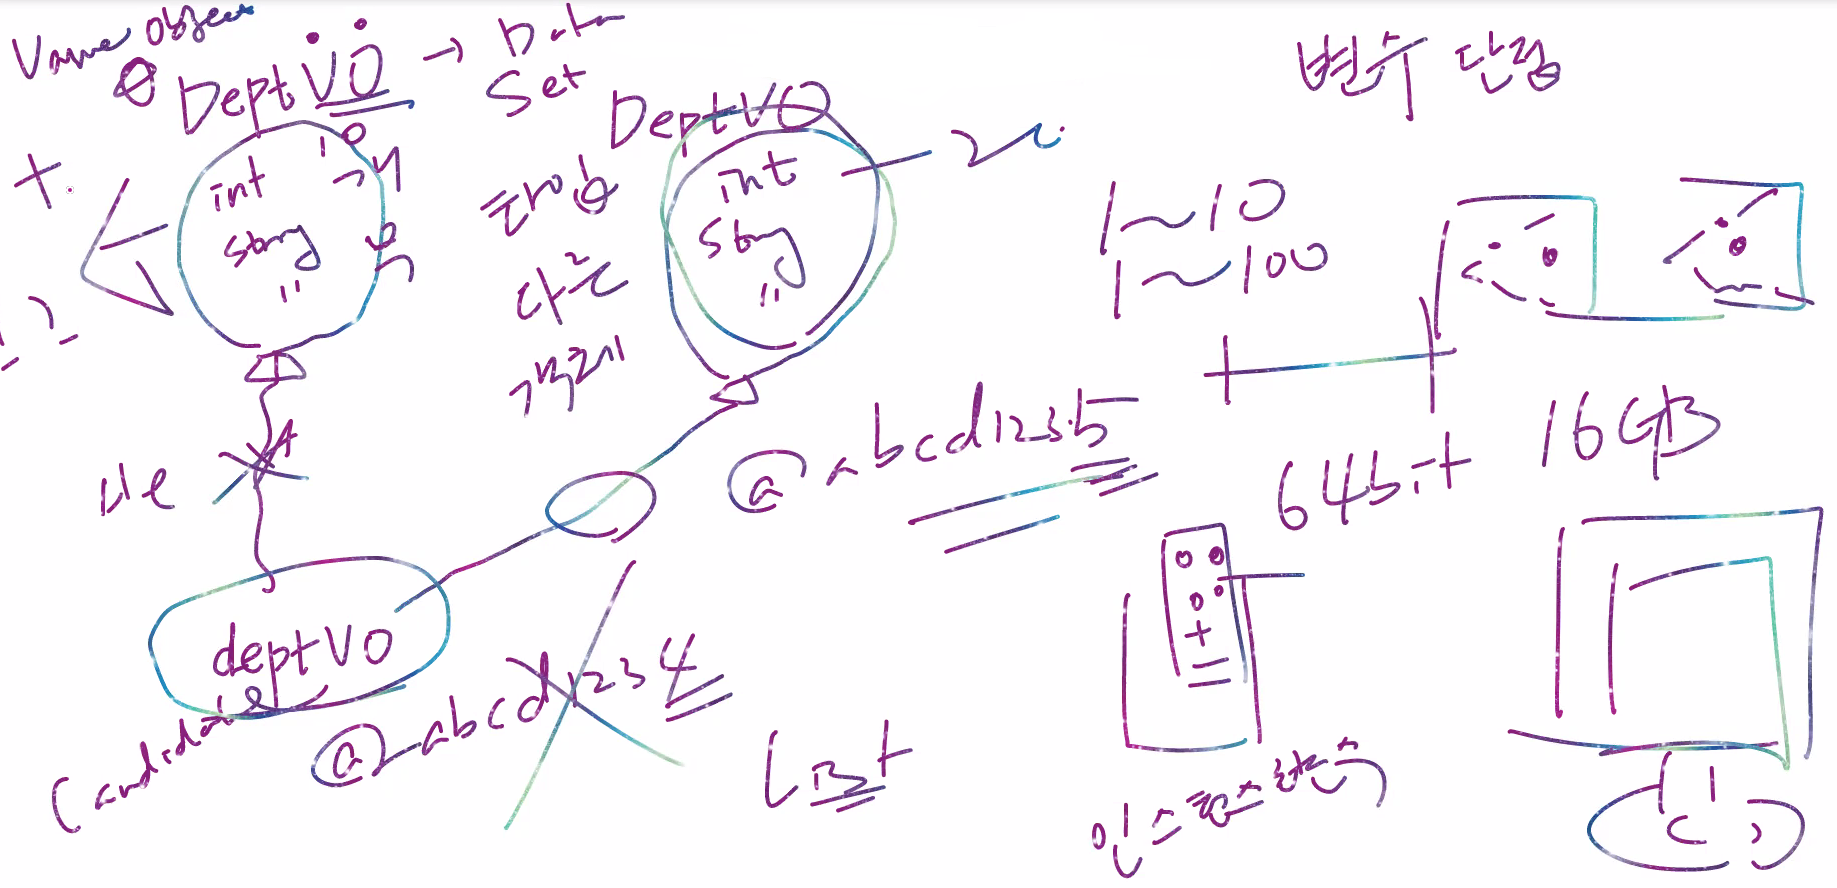 Value Object
DeptVO → Data
Set
int
String
"
10
DeptVO
int
String
"
20
다른
객체
변수 단점
1~10
1~100
64bit
16GB
@abcd1235
deptVO
Candidate
@abcd1234
List
인스턴스변수